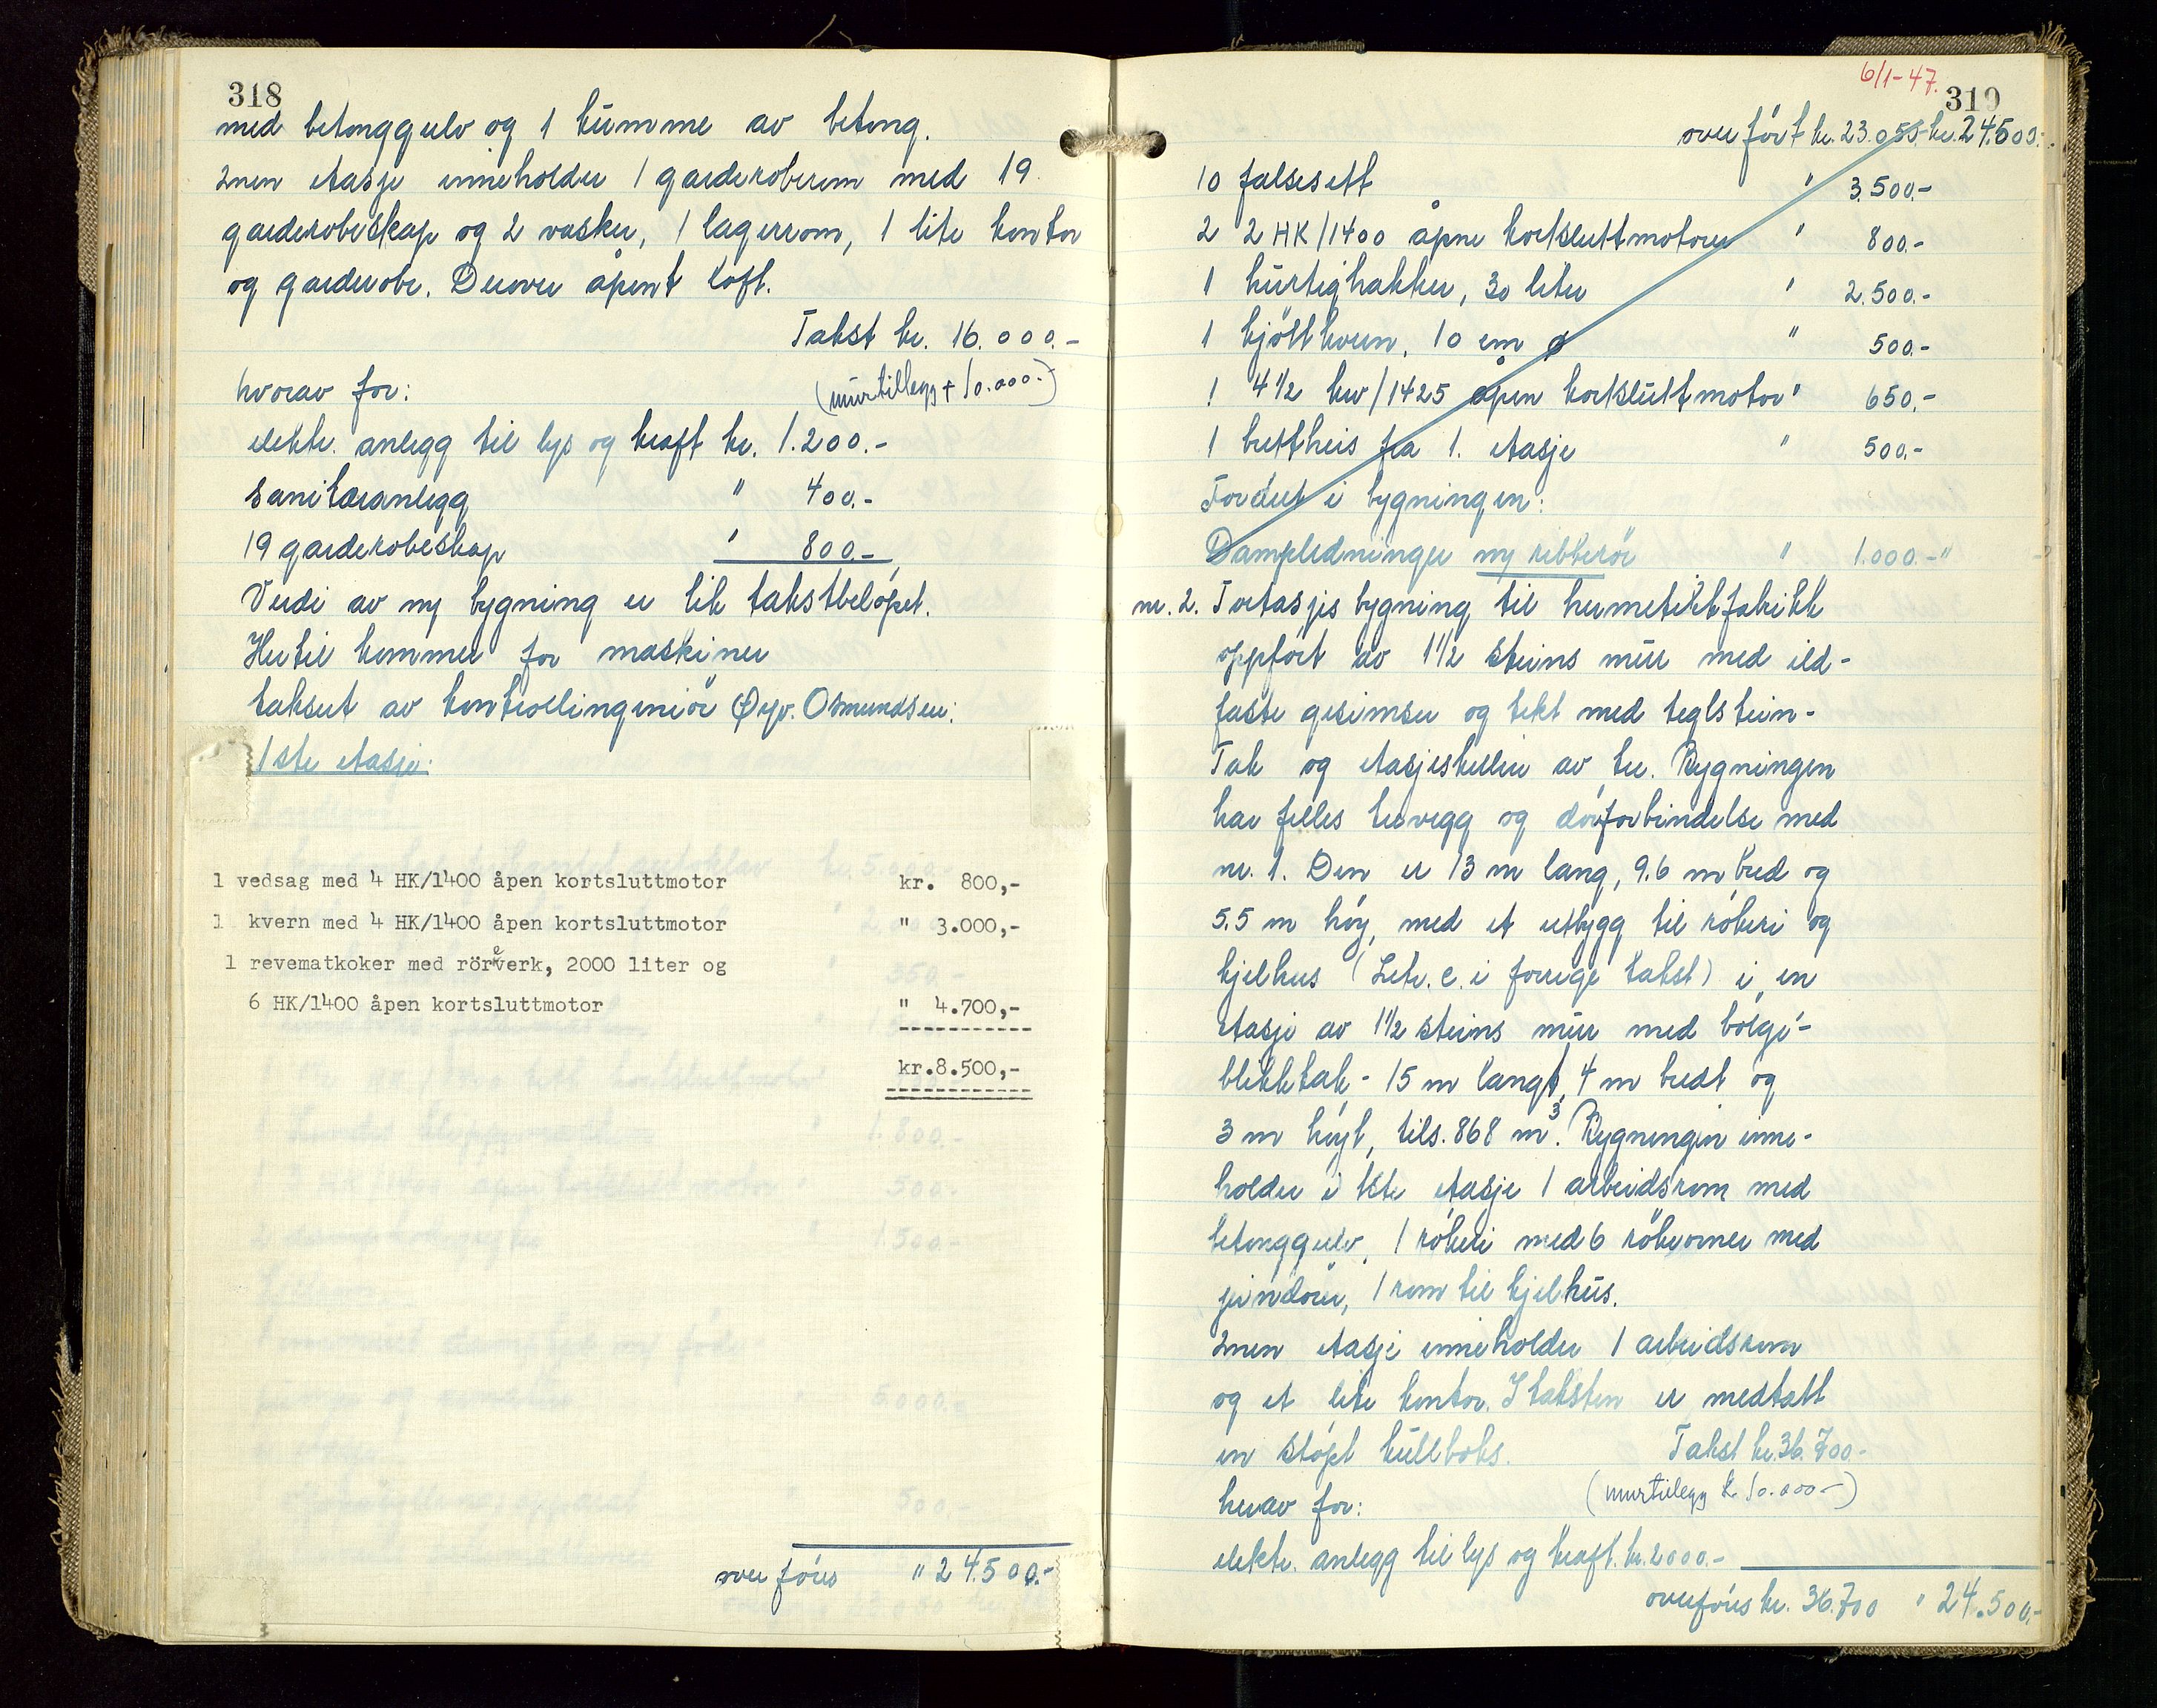 318
med betonggulv og 1 kumme av betong.
2nen etasje inneholder 1 garderoberom med 19
garderobeskap og 2 vasker, 1 lagerrom, 1 lite kontor
og garderobe. Derover åpent loft.
Takst kr. 16.000.-
hvorav for: (murtillegg + 10.000.-)
elektr. anlegg til lys og kraft kr. 1.200.-
Sanitæranlegg " 400.-
19 garderobeskap " 800.-
Verdi av ny bygning er lik takstbeløpet.
Hertil kommer for maskiner
taksert av kontrollingeniör Øyv. Osmundsen:
1ste etasje:
1 vedsag med 4 HK/1400 åpen kortsluttmotor kr. 800,-
1 kvern med 4 HK/1400 åpen kortsluttmotor " 3.000,-
1 revematkoker med röreverk, 2000 liter og
6 HK/1400 åpen kortsluttmotor " 4.700,-
kr.8.500,-
overføres " 24.500.-
6/1-47.
319
overført kr. 23.055.- kr. 24.500.-
10 falsesett " 3.500.-
2 2 HK/1400 åpne kortsluttmotorer " 800.-
1 hurtighakker, 30 liter " 2.500.-
1 kjöttkvern, 10 cm ø " 500.-
1 4 1/2 kw/1425 åpen kortsluttmotor " 650.-
1 brettheis fra 1. etasje " 500.-
Fordelt i bygningen:
Dampledninger ny ribberör " 1.000.- "
nr. 2. Toetasjes bygning til hermetikkfabrikk
oppfört av 1 1/2 steins mur med ild-
faste gesimser og tekt med teglstein-
Tak og etasjeskiller av tre. Bygningen
har felles tverrvegg og dörforbindelse med
nr. 1. Den er 13 m lang, 9.6 m bred og
5.5 m höy, med et utbygg til rökeri og
kjelhus (Litr. c. i forrige takst) i en
etasje av 1 1/2 steins mur med bölge-
blikktak - 15 m langt, 4 m bredt og
3 m höyt, tils. 868 m³. Bygningen inne-
holder i 1ste etasje 1 arbeidsrom med
betonggulv, 1 rökeri med 6 rökovner med
jerndörer, 1 rom til kjelhus.
2nen etasje inneholder 1 arbeidsrom
og et lite kontor. I taksten er medtatt
en stöpt kullboks. Takst kr. 36.700.-
herav for: (murtillegg kr. 10.000.-)
elektr. anlegg til lys og kraft. kr. 2000.-
overföres kr. 36.700 " 24.500.-